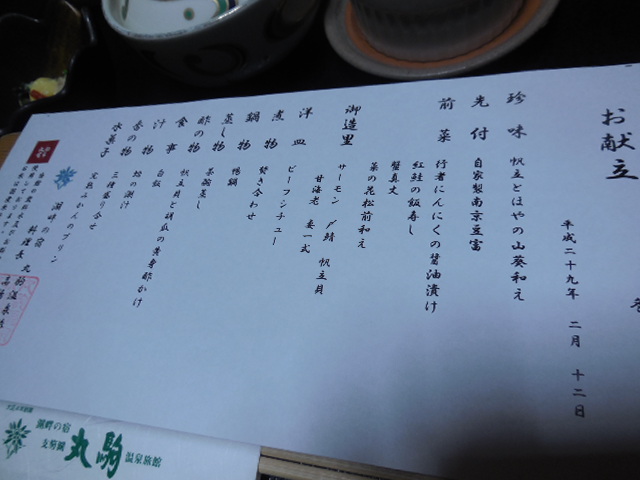 お献立
平成二十九年 二月 十二日
珍味 帆立とほやの山葵和え
先付 自家製南京豆富
前菜 行者にんにくの醤油漬け
紅鮭の飯寿し
蟹真丈
菜の花松前和え
御造里 サーモン 〆鯖 帆立貝
甘海老 妻一式
洋皿 ビーフシチュー
煮物 焚き合わせ
鍋物 鴨鍋
蒸し物 茶碗蒸し
酢の物 帆立貝と胡瓜の黄身酢かけ
食事 白飯
汁物 蛤の潮汁
香の物 三種盛り合せ
水菓子 完熟みかんのプリン
湖畔の宿
料理長
湖畔の宿
支笏湖
丸駒
温泉旅館